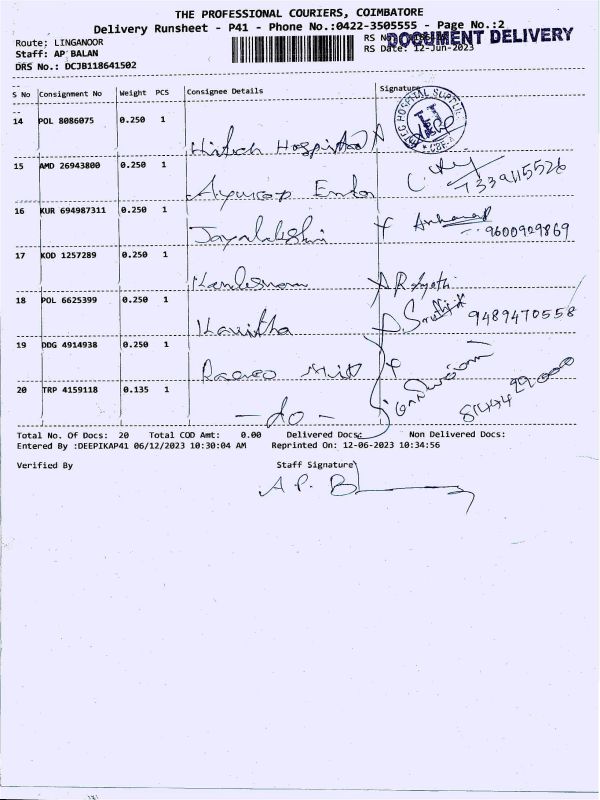 THE PROFESSIONAL COURIERS, COIMBATORE
Delivery Runsheet - P41 - Phone No.:0422-3505555 - Page No.:2
Route: LINGANOOR
Staff: AP BALAN
DRS No.: DCJB118641502
RS No
RS Date: 12-Jun-2023
DOCUMENT DELIVERY
S No Consignment No Weight PCS Consignee Details Signature
14 POL 8086075 0.250 1
Hitech Hospital
15 AMD 26943800 0.250 1
7339115526
16 KUR 694987311 0.250 1
Jayalakshmi
9600929869
17 KOD 1257289 0.250 1
18 POL 6625399 0.250 1
Kavitha 9489470558
19 DDG 4914938 0.250 1
20 TRP 4159118 0.135 1
- do -
Total No. Of Docs: 20 Total COD Amt: 0.00 Delivered Docs: Non Delivered Docs:
Entered By :DEEPIKAP41 06/12/2023 10:30:04 AM Reprinted On: 12-06-2023 10:34:56
Verified By Staff Signature
A.P. B